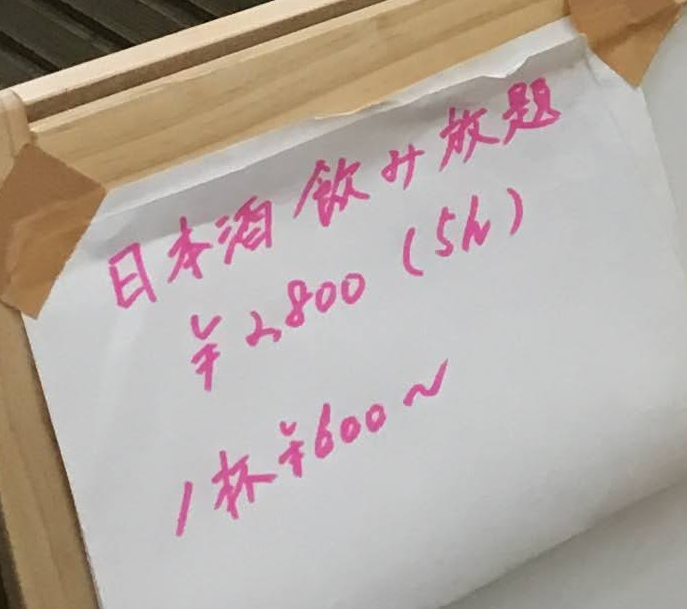 日本酒 飲み放題
¥2,800 (5h)
1杯 ¥600〜